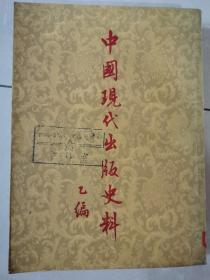 中國現代出版史料
乙編